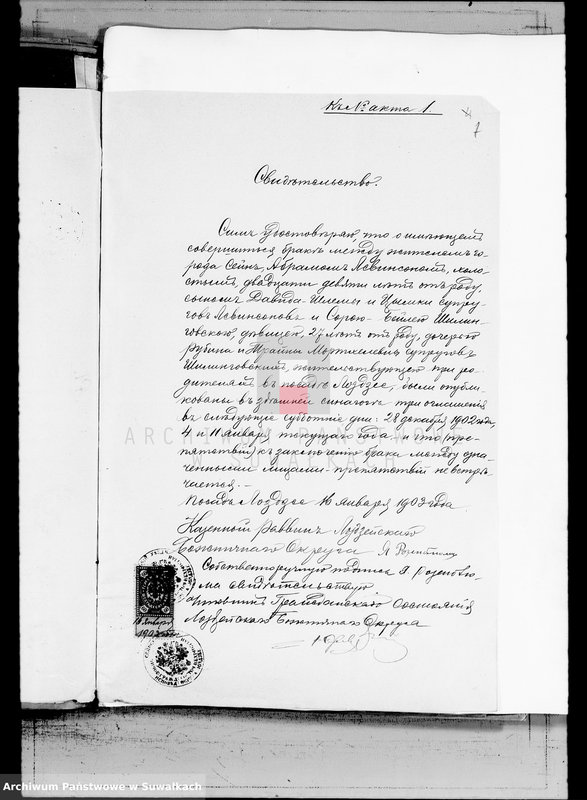 Къ № акта 1.
Свидѣтельство.
Симъ удостовѣряю что о имѣющемъ
совершиться бракѣ между жителемъ го
рода Сейнъ, Абрамомъ Левинсономъ, холо
стымъ, двадцати девяти лѣтъ отъ роду,
сыномъ Давида-Шлемы и супру
говъ Левинсоновъ и Сорою-Бейлею Шилин-
говскою, дѣвицею, 27 лѣтъ отъ роду, дочерью
Рубина и Трайны Морткелевны супруговъ
Шилинговскихъ, жительствующею при ро-
дителяхъ въ посадѣ Лоздзее, были опубли
кованы въ здѣшней синагогѣ три оглашенія
въ слѣдующіе субботніе дни: 28 декабря 1902 года,
4 и 11 января текущаго года и что (пре-
пятствій) къ заключенію брака между озна-
ченными лицами препятствій не встрѣ
чается.-
Посадъ Лоздзее 16 января 1903 года.
Казенный Раввинъ Лоздзейскаго
Божничнаго Округа Я Розенблюмъ
Собственноручную подпись Я. Розенблю-
ма свидѣтельствую
Чиновникъ Гражданскаго Состоянія
Лоздзейскаго Божничнаго Округа
16 Января
1903
ARCHIWUM PAŃSTWOWE
W SUWAŁKACH
Archiwum Państwowe w Suwałkach